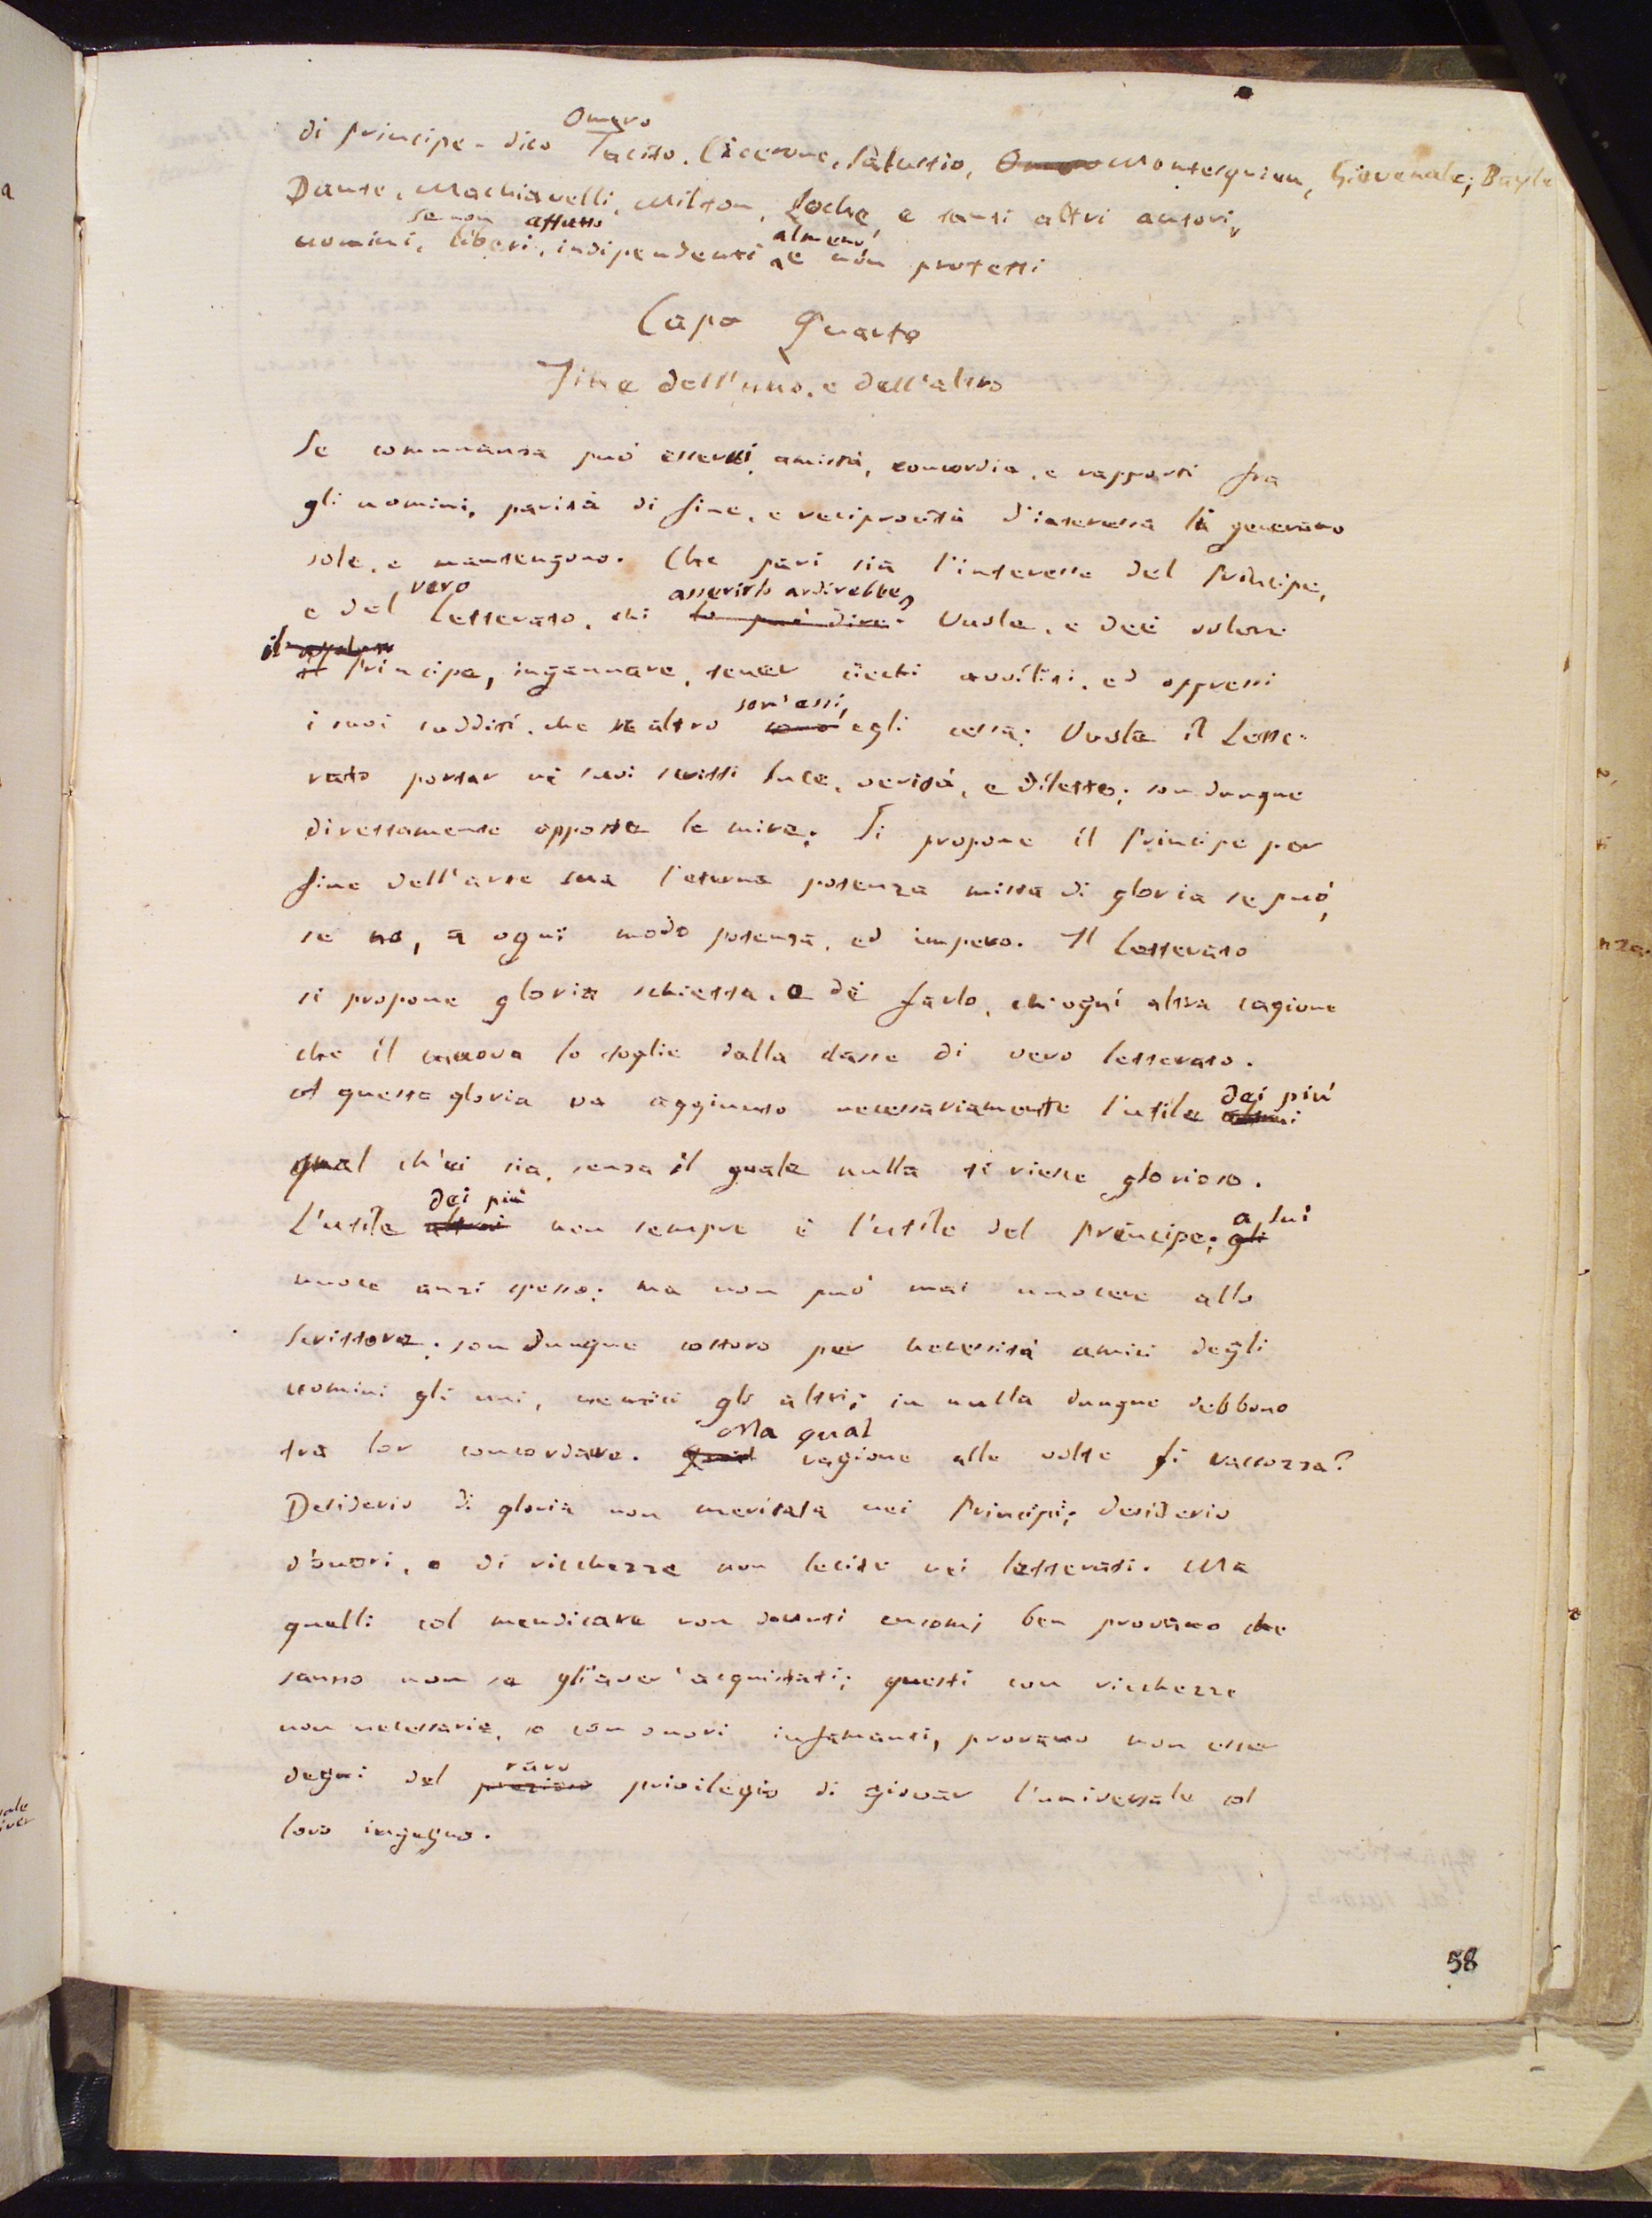 di principe. dico Omero Tacito, Cicerone, Salustio, Omero Montesquieu, Giovenale, Bayle
Dante, Machiavelli, Milton, Locke, e tanti altri autori,
uomini, se non affatto liberi, indipendenti almeno, e non protetti
Capo Quarto
Fine dell'uno, e dell'altro
Se comunanza può esservi, amistà, concordia, e rapporti fra
gli uomini, parità di fine, e reciprocità d'interesse la generano
sole, e mantengono. Che pari sia l'interesse del Principe,
e del vero Letterato, chi lo può dire asserirlo ardirebbe? Vuole, e dee volere
il Principe, ingannare, tener ciechi avviliti, ed oppressi
i suoi sudditi, che se altro sono son'essi, egli cessa; Vuole il Lette-
rato portar ne' suoi scritti luce, verità, e diletto; son dunque
direttamente opposte le mire. Si propone il Principe per
fine dell'arte sua l'eterna potenza mista di gloria se può,
se no, a ogni modo potenza, ed impero. Il Letterato
si propone gloria schietta, e de' farlo, ch'ogni altra cagione
che il muova lo toglie dalla classe di vero letterato.
A questa gloria va aggiunto necessariamente l'utile altrui dei più
qual ch'ei sia, senza il quale nulla ti riesce glorioso.
L'utile altrui dei più non sempre è l'utile del principe; gli a lui
nuoce anzi spesso; ma non può mai nuocere allo
Scrittore; son dunque costoro per necessità amici degli
uomini gli uni, nemici gli altri; in nulla dunque debbono
tra lor concordare. Qual Ma qual ragione alle volte gli raccozza?
Desiderio di gloria non meritata nei Principi; desiderio
d'onori, o di ricchezze non lecite nei letterati. Ma
quelli col mendicare non dovuti encomj ben provano che
sanno non se gli aver' acquistati; questi con ricchezze
non necessarie, o con onori infamanti, provano non esser
degni del prezioso raro privilegio di giovar l'universale col
loro ingegno.
58